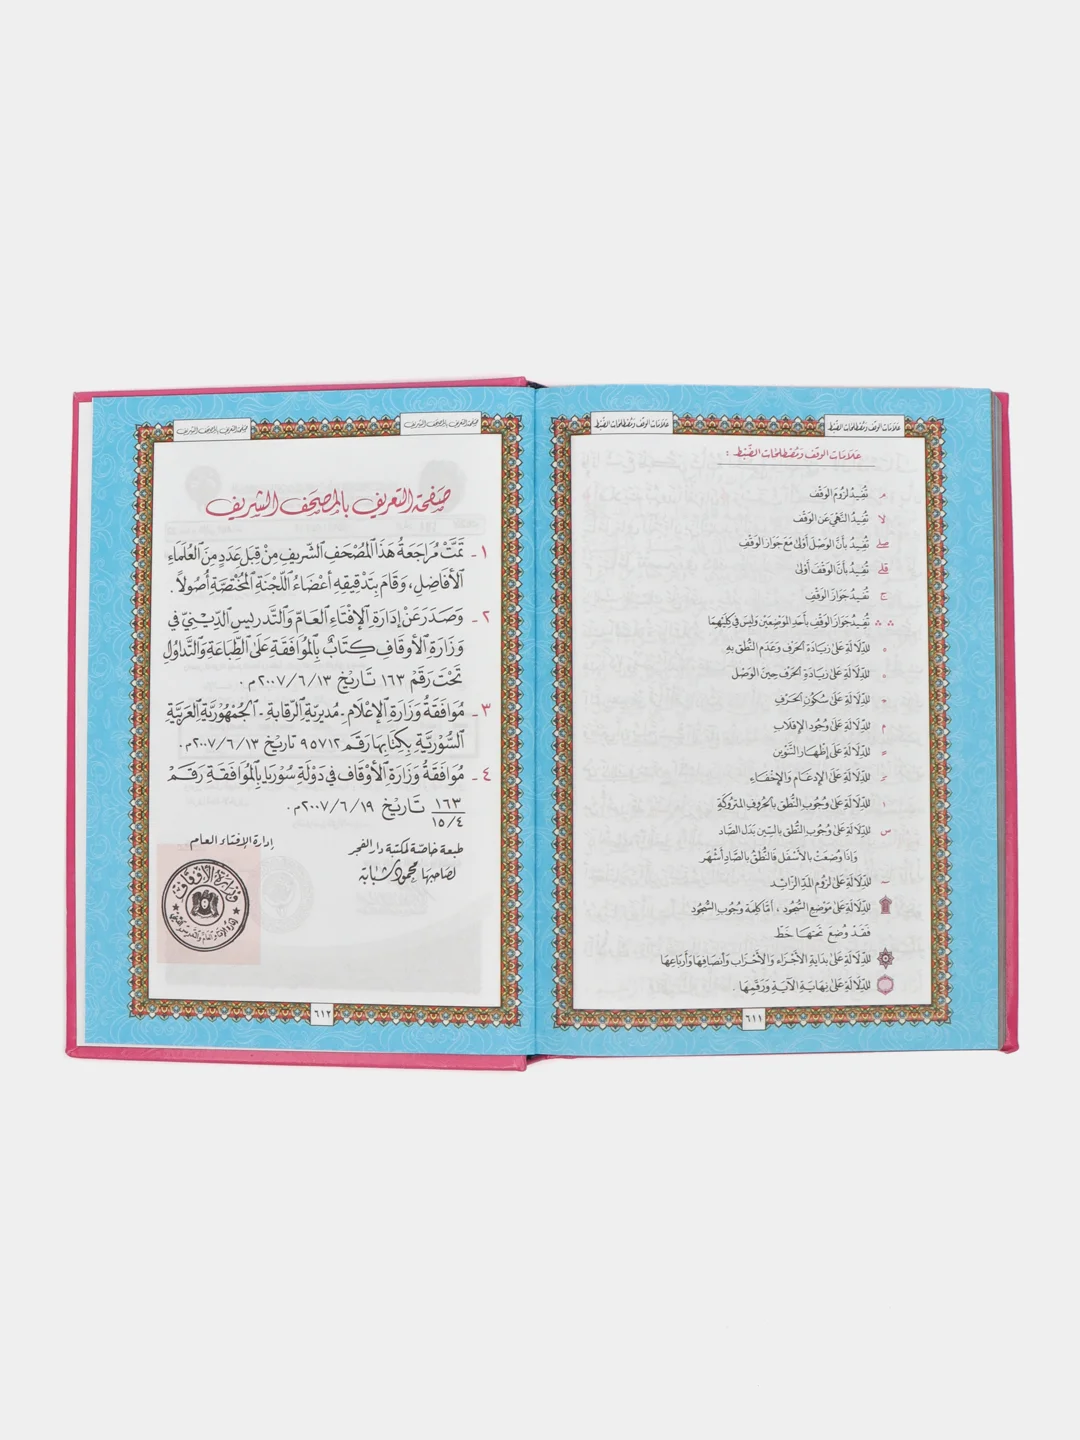 علامات الوقف ومصطلحات الضبط
علامات الوقف ومصطلحات الضبط
علامات الوقف ومصطلحات الضبط :
م تُفِيدُ لُزُومَ الوَقْف
لا تُفِيدُ النَّهْيَ عَنِ الوَقْف
صلے تُفِيدُ بِأَنَّ الوَصْلَ أَوْلَىٰ مَعَ جَوَازِ الوَقْفِ
قلے تُفِيدُ بِأَنَّ الوَقْفَ أَوْلَىٰ
ج تُفِيدُ جَوَازَ الوَقْفِ
∴ ∴ تُفِيدُ جَوَازَ الوَقْفِ بِأَحَدِ المَوْضِعَيْنِ وَلَيْسَ فِي كِلَيْهِمَا
لِلدِّلَالَةِ عَلَىٰ زِيَادَةِ الحَرْفِ وَعَدَمِ النُّطْقِ بِهِ
لِلدِّلَالَةِ عَلَىٰ زِيَادَةِ الحَرْفِ حِينَ الوَصْل
لِلدِّلَالَةِ عَلَىٰ سُكُونِ الحَرْفِ
م لِلدِّلَالَةِ عَلَىٰ وُجُودِ الإِقْلَابِ
لِلدِّلَالَةِ عَلَىٰ إِظْهَارِ التَّنْوِينِ
لِلدِّلَالَةِ عَلَىٰ الإِدْغَامِ وَالإِخْفَاءِ
ا لِلدِّلَالَةِ عَلَىٰ وُجُوبِ النُّطْقِ بِالحُرُوفِ المَتْرُوكَةِ
س لِلدِّلَالَةِ عَلَىٰ وُجُوبِ النُّطْقِ بِالسِّينِ بَدَلَ الصَّادِ
وَإِذَا وُضِعَتْ بِالأَسْفَلِ فَالنُّطْقُ بِالصَّادِ أَشْهَر
لِلدِّلَالَةِ عَلَىٰ لُزُومِ المَدِّ الزَّائِدِ
لِلدِّلَالَةِ عَلَىٰ مَوْضِعِ السُّجُودِ ، أَمَّا كَلِمَةُ وُجُوبِ السُّجُودِ
فَقَدْ وُضِعَ تَحْتَهَا خَطّ
لِلدِّلَالَةِ عَلَىٰ بِدَايَةِ الأَجْزَاءِ وَالأَحْزَابِ وَأَنْصَافِهَا وَأَرْبَاعِهَا
لِلدِّلَالَةِ عَلَىٰ نِهَايَةِ الآيَةِ وَرَقْمِهَا .
٦١١
صفحة التعريف بالمصحف الشريف
صفحة التعريف بالمصحف الشريف
صفحة التعريف بالمصحف الشريف
١ـ تَمَّتْ مُرَاجَعَةُ هَذَا المُصْحَفِ الشَّرِيفِ مِنْ قِبَلِ عَدَدٍ مِنَ العُلَمَاءِ
الأَفَاضِلِ، وَقَامَ بِتَدْقِيقِهِ أَعْضَاءُ اللَّجْنَةِ المُخْتَصَّةِ أُصُولاً .
٢ـ وَصَدَرَ عَنْ إِدَارَةِ الإِفْتَاءِ العَامِّ وَالتَّدْرِيسِ الدِّينِيِّ فِي
وَزَارَةِ الأَوْقَافِ كِتَابٌ بِالمُوَافَقَةِ عَلَى الطِّبَاعَةِ وَالتَّدَاوُلِ
تَحْتَ رَقَمِ ١٦٣ تَارِيخ ٢٠٠٧/٦/١٣م .
٣ـ مُوَافَقَةُ وَزَارَةِ الإِعْلَامِ ـ مُدِيرِيَّةِ الرَّقَابَةِ ـ الجُمْهُورِيَّةِ العَرَبِيَّةِ
السُّورِيَّةِ بِكِتَابِهَا رَقَم ٩٥٧١٢ تاريخ ٢٠٠٧/٦/١٣م .
٤ـ مُوَافَقَةُ وَزَارَةِ الأَوْقَافِ فِي دَوْلَةِ سُورِيَا بِالمُوَافَقَةِ رَقَم
١٦٣
١٥/٤ تَارِيخ ٢٠٠٧/٦/١٩م .
إدارة الإفتاء العام
طبعة خاصة لمكتبة دار الفجر
لصاحبها محمود شبابة
وزارة الأوقاف
٦١٢